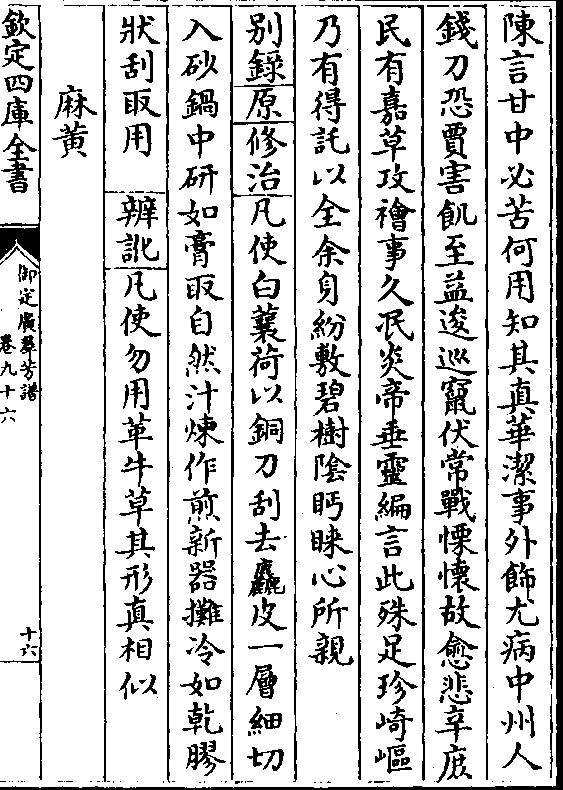 陳言甘中必苦何用知其真華潔事外飾尤病中州人
錢刀恐賈害飢至益逡巡竄伏常戰慄懷故愈悲辛庶
民有嘉草攻禬事久泯炎帝垂靈編言此殊足珍崎嶇
乃有得託以全余身紛敷碧樹陰眄睞心所親
别錄原修治凡使白蘘荷以銅刀刮去麤皮一層細切
入砂鍋中研如膏取自然汁煉作煎新器攤冷如乾膠
狀刮取用 辨訛凡使勿用革牛草其形真相似
麻黄
欽定四庫全書
御定廣羣芳譜
卷九十六
十六